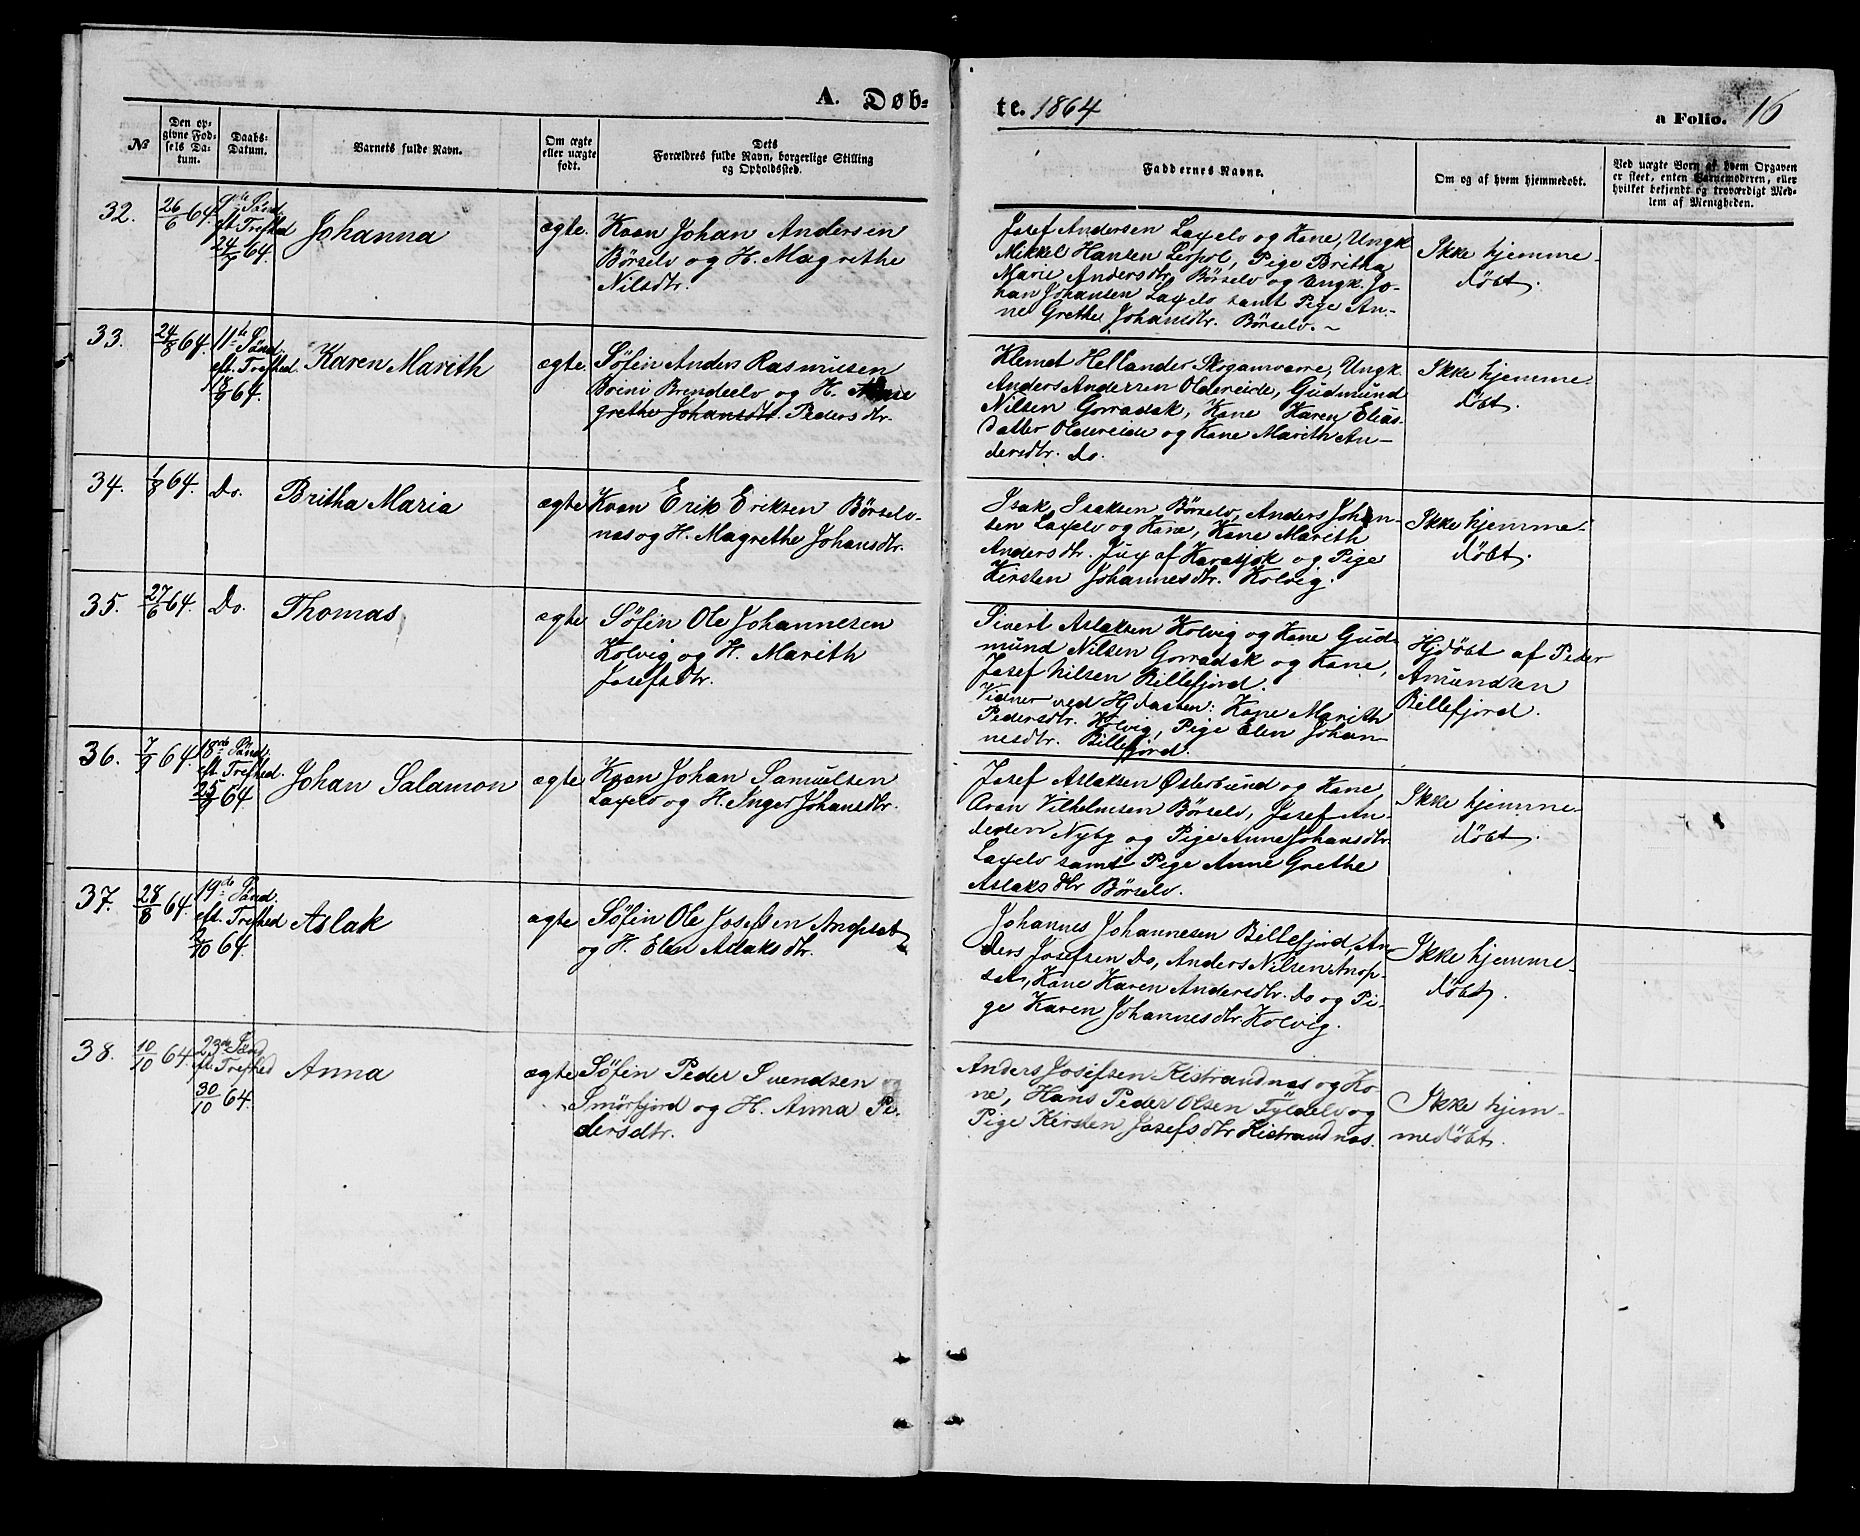 A. Døb-
te. 1864
a Folio. 16
No
Den op-
givne Fød-
sels Da-
tum.
Daabs-
Datum.
Barnets fulde Navn.
Om ægte
eller uægte
født.
Dets
Forældres fulde Navn, borgerlige Stilling
og Opholdssted.
Faddernes Navne.
Om og af hvem hjemmedøbt.
Ved uægte Børn af hvem Opgaven
er skeet, enten Barnemoderen, eller
hvilket bekjendt og troværdigt Med-
lem af Menigheden.
32.
26/6 64.
Sönd.
eft. Trefhed
24/7 64.
Johanna
ægte
Kvæn Johan Andersen
Börselv og H. Magrethe
Nilsdtr.
Josef Andersen Laxelv og Kone, Ungk.
Mikkel Hansen Leirpol, Pige Britha
Marie Andersdtr. Börselv og Ungk. Jo-
han Johansen Laxelv samt Pige An-
ne Grethe Johansdtr. Börselv.
Ikke hjemme-
döbt.
33.
24/8 64.
11te Sönd.
eft. Trefhed.
64.
Karen Marith
ægte.
Söfin Anders Rasmusen
Brendelv og H.
grethe Johansdtr. Pedersdtr.
Klemet Hellander Skoganvarre, Ungk.
Anders Andersen Oldereide, Gudmund
Nilsen Gorradak, Kone Karen Elias-
datter Oldereide og Kone Marith An-
dersdtr. do.
Ikke hjemme-
döbt.
34.
1/8 64.
Do.
Britha Maria
ægte
Kvæn Erik Eriksen Börselv-
nas og H. Magrethe Johansdtr.
Isak Isaksen Börselv, Anders Johan-
sen Laxelv og Kone, Kone Marith
Andersdtr. Jux af Karasjok og Pige
Kirsten Johannesdtr. Kolvig.
Ikke hjemme-
döbt.
35.
27/6 64.
Do.
Thomas
ægte
Söfin Ole Johannesen
Kolvig og H. Marith
Josefsdtr.
Sivert Aslaksen Kolvig og Kone Gud-
mund Nilsen Gorradak og Kone,
Josef Nilsen Billefjord.
Vidner ved Hjdaaben: Kone Marith
Pedersdtr. Kolvig, Pige Elen Johan-
nesdtr. Billefjord.
Hjdöbt af Peder
Amundsen
Billefjord.
36.
7/9 64.
18de Sönd.
eft. Trefhed.
25/9 64
Johan Salamon
ægte
Kvæn Johan Samuelsen
Laxelv og H. Inger Johansdtr.
Josef Aslaksen Österbund og Kone,
Aron Vilhelmsen Börselv, Josef An-
dersen Nyby og Pige Anne Johansdtr.
Laxelv samt Pige Anne Grethe
Aslaksdtr Börselv.
Ikke hjemme-
döbt.
37.
28/8 64.
19de Sönd.
eft. Trefhed
2/10 64.
Aslak
ægte
Söfin Ole Josefsen Anopset
og H. Elen Aslaksdtr.
Johannes Johannesen Billefjord, An-
ders Josefsen do, Anders Nilsen Anop-
set, Kone Karen Andersdtr. do og Pi-
ge Karen Johannesdtr Kolvig.
Ikke hjemme-
döbt.
38.
10/10 64.
23de Sönd
eft. Trefhed
30/10 64.
Anna
ægte
Söfin Peder Svendsen
Smörfjord og H. Anna Pe-
dersdtr.
Anders Josefsen Kistrandnas og Ko-
ne, Hans Peder Olsen og
Pige Kirsten Josefsdtr Kistrandnas.
Ikke hjem-
medöbt.